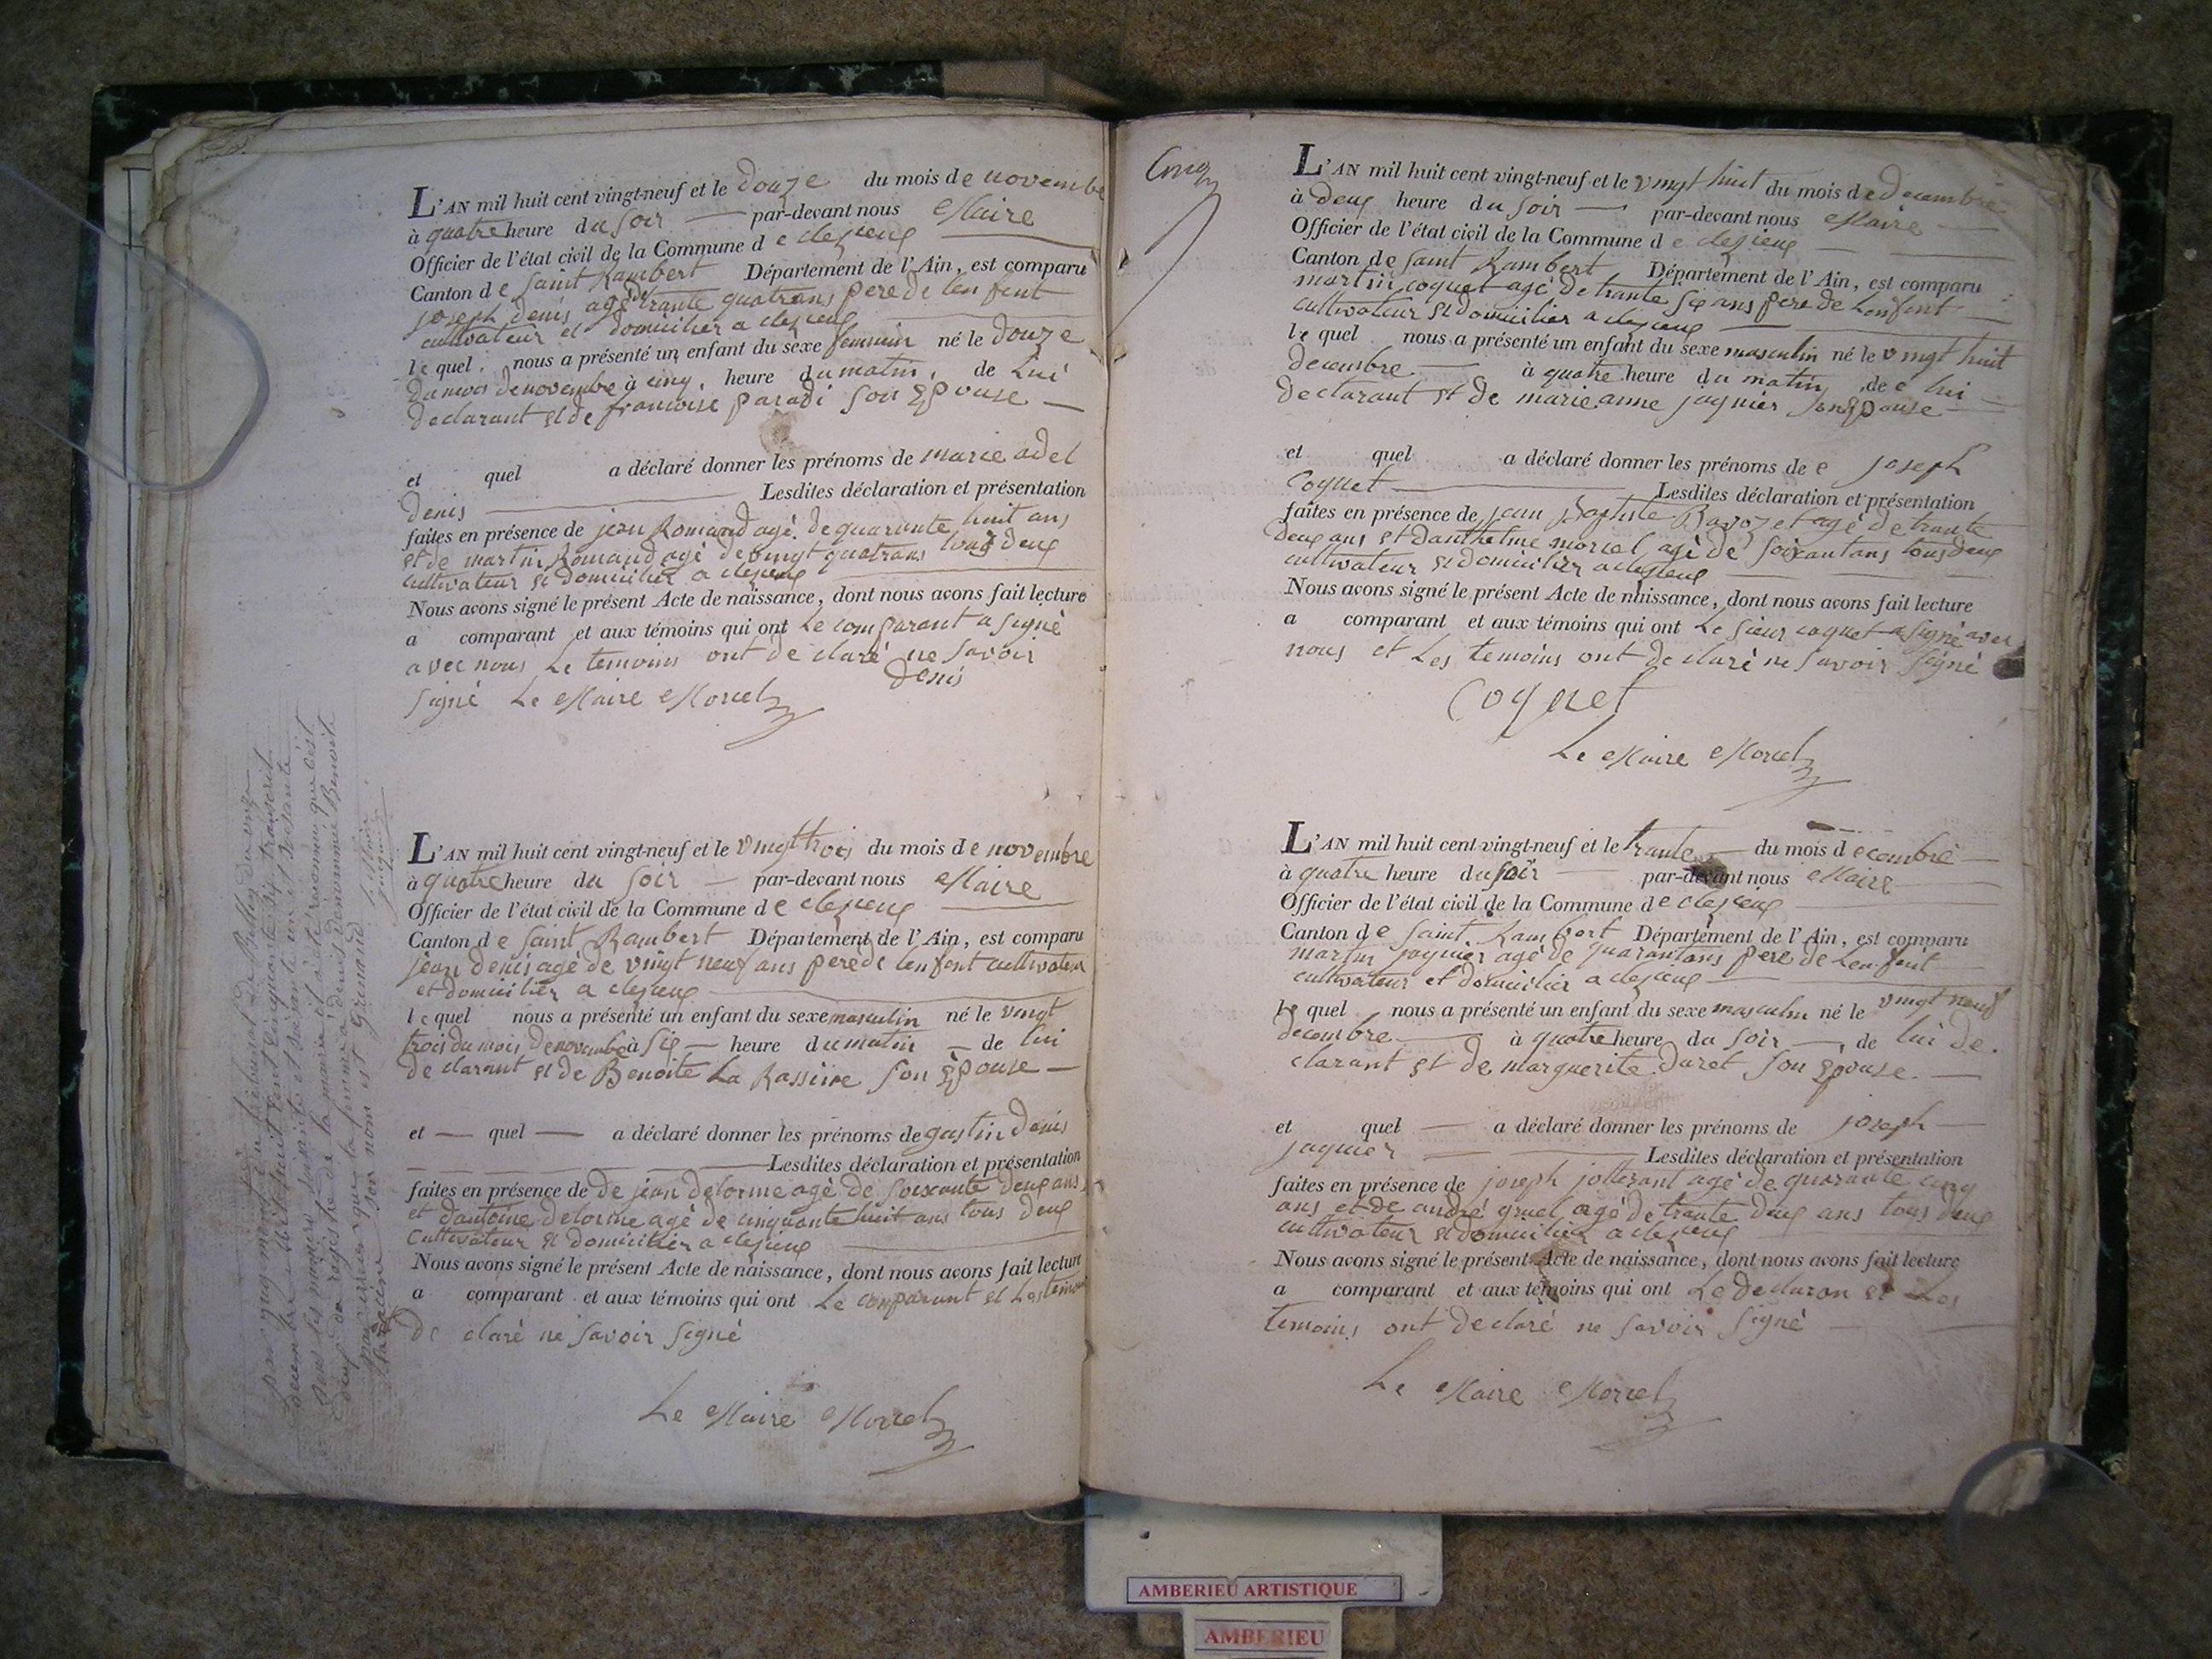 L'AN mil huit cent vingt-neuf et le douze du mois de novembre
à quatre heure du soir — par-devant nous Maire
Officier de l'état civil de la Commune de clezieux
Canton de Saint Rambert Département de l'Ain, est comparu
joseph denis agé de trante quatrans pere de lenfent
cultivateur et domicilier a clezieux
le quel nous a présenté un enfant du sexe feminin né le douze
du mois de novembre à cinq heure du matin, de lui
declarant et de francoise paradi son Epouse —
et quel a déclaré donner les prénoms de marie adel
denis — Lesdites déclaration et présentation
faites en présence de jean Romand agé de quarante huit ans
et de martin Romand agé de vingt quatrans tous deux
cultivateur et domicilier a clezieux
Nous avons signé le présent Acte de naissance, dont nous avons fait lecture
a comparant et aux témoins qui ont le comparant a signé
avec nous Le temoins ont declaré ne savoir
denis
signé Le Maire Morcel
L'AN mil huit cent vingt-neuf et le vingt trois du mois de novembre
à quatre heure du soir — par-devant nous Maire
Officier de l'état civil de la Commune de clezieux
Canton de Saint Rambert Département de l'Ain, est comparu
jean denis agé de vingt neuf ans pere de lenfent cultivateur
et domicilier a clezieux
le quel nous a présenté un enfant du sexe masculin né le vingt
trois du mois de novembre à six — heure du matin — de lui
declarant et de Benoite La Rassine son Epouse —
et — quel — a déclaré donner les prénoms de gastin Denis
— Lesdites déclaration et présentation
faites en présence de de jean delorme agé de soixante deux ans
et dantoine delorme agé de cinquante huit ans tous deux
cultivateur et domicilier a clezieux
Nous avons signé le présent Acte de naissance, dont nous avons fait lecture
a comparant et aux témoins qui ont Le comparant et Les temoins
De claré ne savoir signé
Le Maire Morcel
par jugement du tribunal de Belley du onze
mil huit cent cinquante six, transcrit
que la femme a denis denommé Benoite
son nom est Grenand
Le Maire
Cinq
L'AN mil huit cent vingt-neuf et le vingt huit du mois de Decembre
à deux heure du soir — par-devant nous Maire —
Officier de l'état civil de la Commune de clezieux —
Canton de Saint Rambert Département de l'Ain, est comparu
martin coquet agé de trante six ans pere de Lenfent
cultivateur et domicilier a clezieux —
le quel nous a présenté un enfant du sexe masculin né le vingt huit
decembre — à quatre heure du matin de e lui —
declarant et de marie anne jaquier son Epouse —
et quel a déclaré donner les prénoms de e joseph
Coquet — Lesdites déclaration et présentation
faites en présence de jean Baptiste Bavozet agé de trante
deux ans et danthelme morcel agé de soixantans tous deux
cultivateur et domicilier a clezieux —
Nous avons signé le présent Acte de naissance, dont nous avons fait lecture
a comparant et aux témoins qui ont Le sieur coquet a signé avec
nous et Les temoins ont declaré ne savoir signé
Coquet
Le Maire Morcel
L'AN mil huit cent vingt-neuf et le trante — du mois decembre —
à quatre heure du soir — par-devant nous Maire
Officier de l'état civil de la Commune de clezieux
Canton de Saint Rambert Département de l'Ain, est comparu
martin jaquier agé de quarantans pere de Lenfent
cultivateur et domicilier a clezieux —
le quel nous a présenté un enfant du sexe masculin né le vingt neuf
decembre — à quatre heure du soir —, de lui de
clarant et de marguerite Duret son Epouse. —
et quel — a déclaré donner les prénoms de joseph —
jaquier — Lesdites déclaration et présentation
faites en présence de joseph jotterant agé de quarante cinq
ans et de andré gruel agé de trante deux ans tous deux
cultivateur et domicilier a clezieux
Nous avons signé le présent Acte de naissance, dont nous avons fait lecture
a comparant et aux témoins qui ont Le declaron et Les
temoins ont declaré ne savoir signé —
Le Maire Morcel
AMBERIEU ARTISTIQUE
AMBERIEU